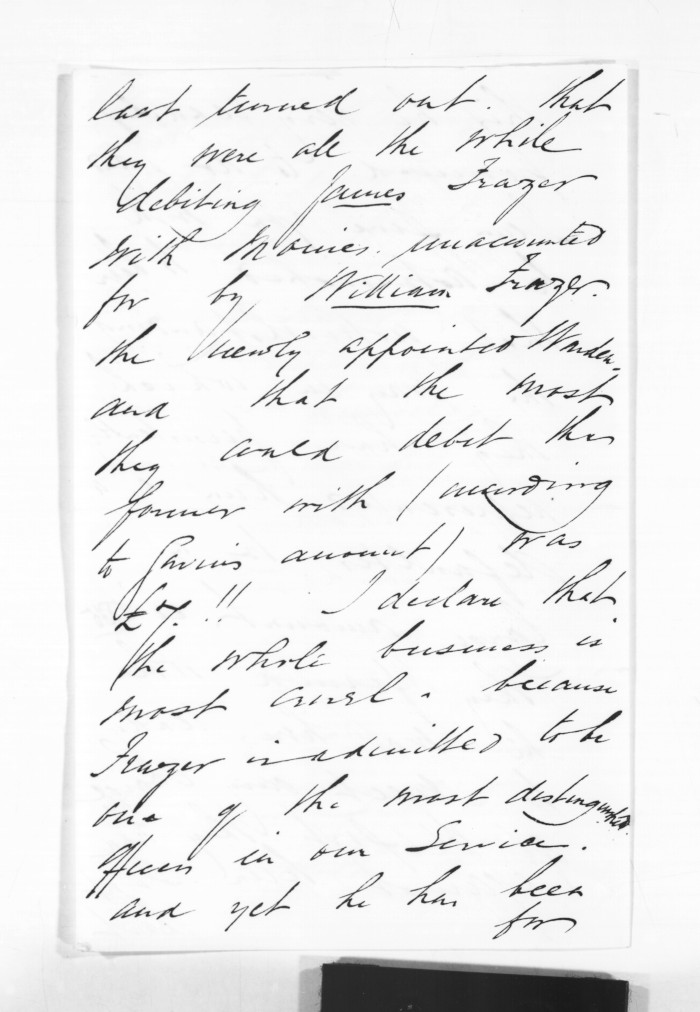 last turned out. that
they were all the while
debiting James Frazer
with monies unaccounted
for by William Frazer.
the newly appointed Warden,
and that the most
they could debit the
former with (according
to Gavins amount) was
£7.!! I declare that
the whole business is
most cruel. because
Frazer is admitted to be
one of the most distinguished
officers in our Service.
and yet he has been
for